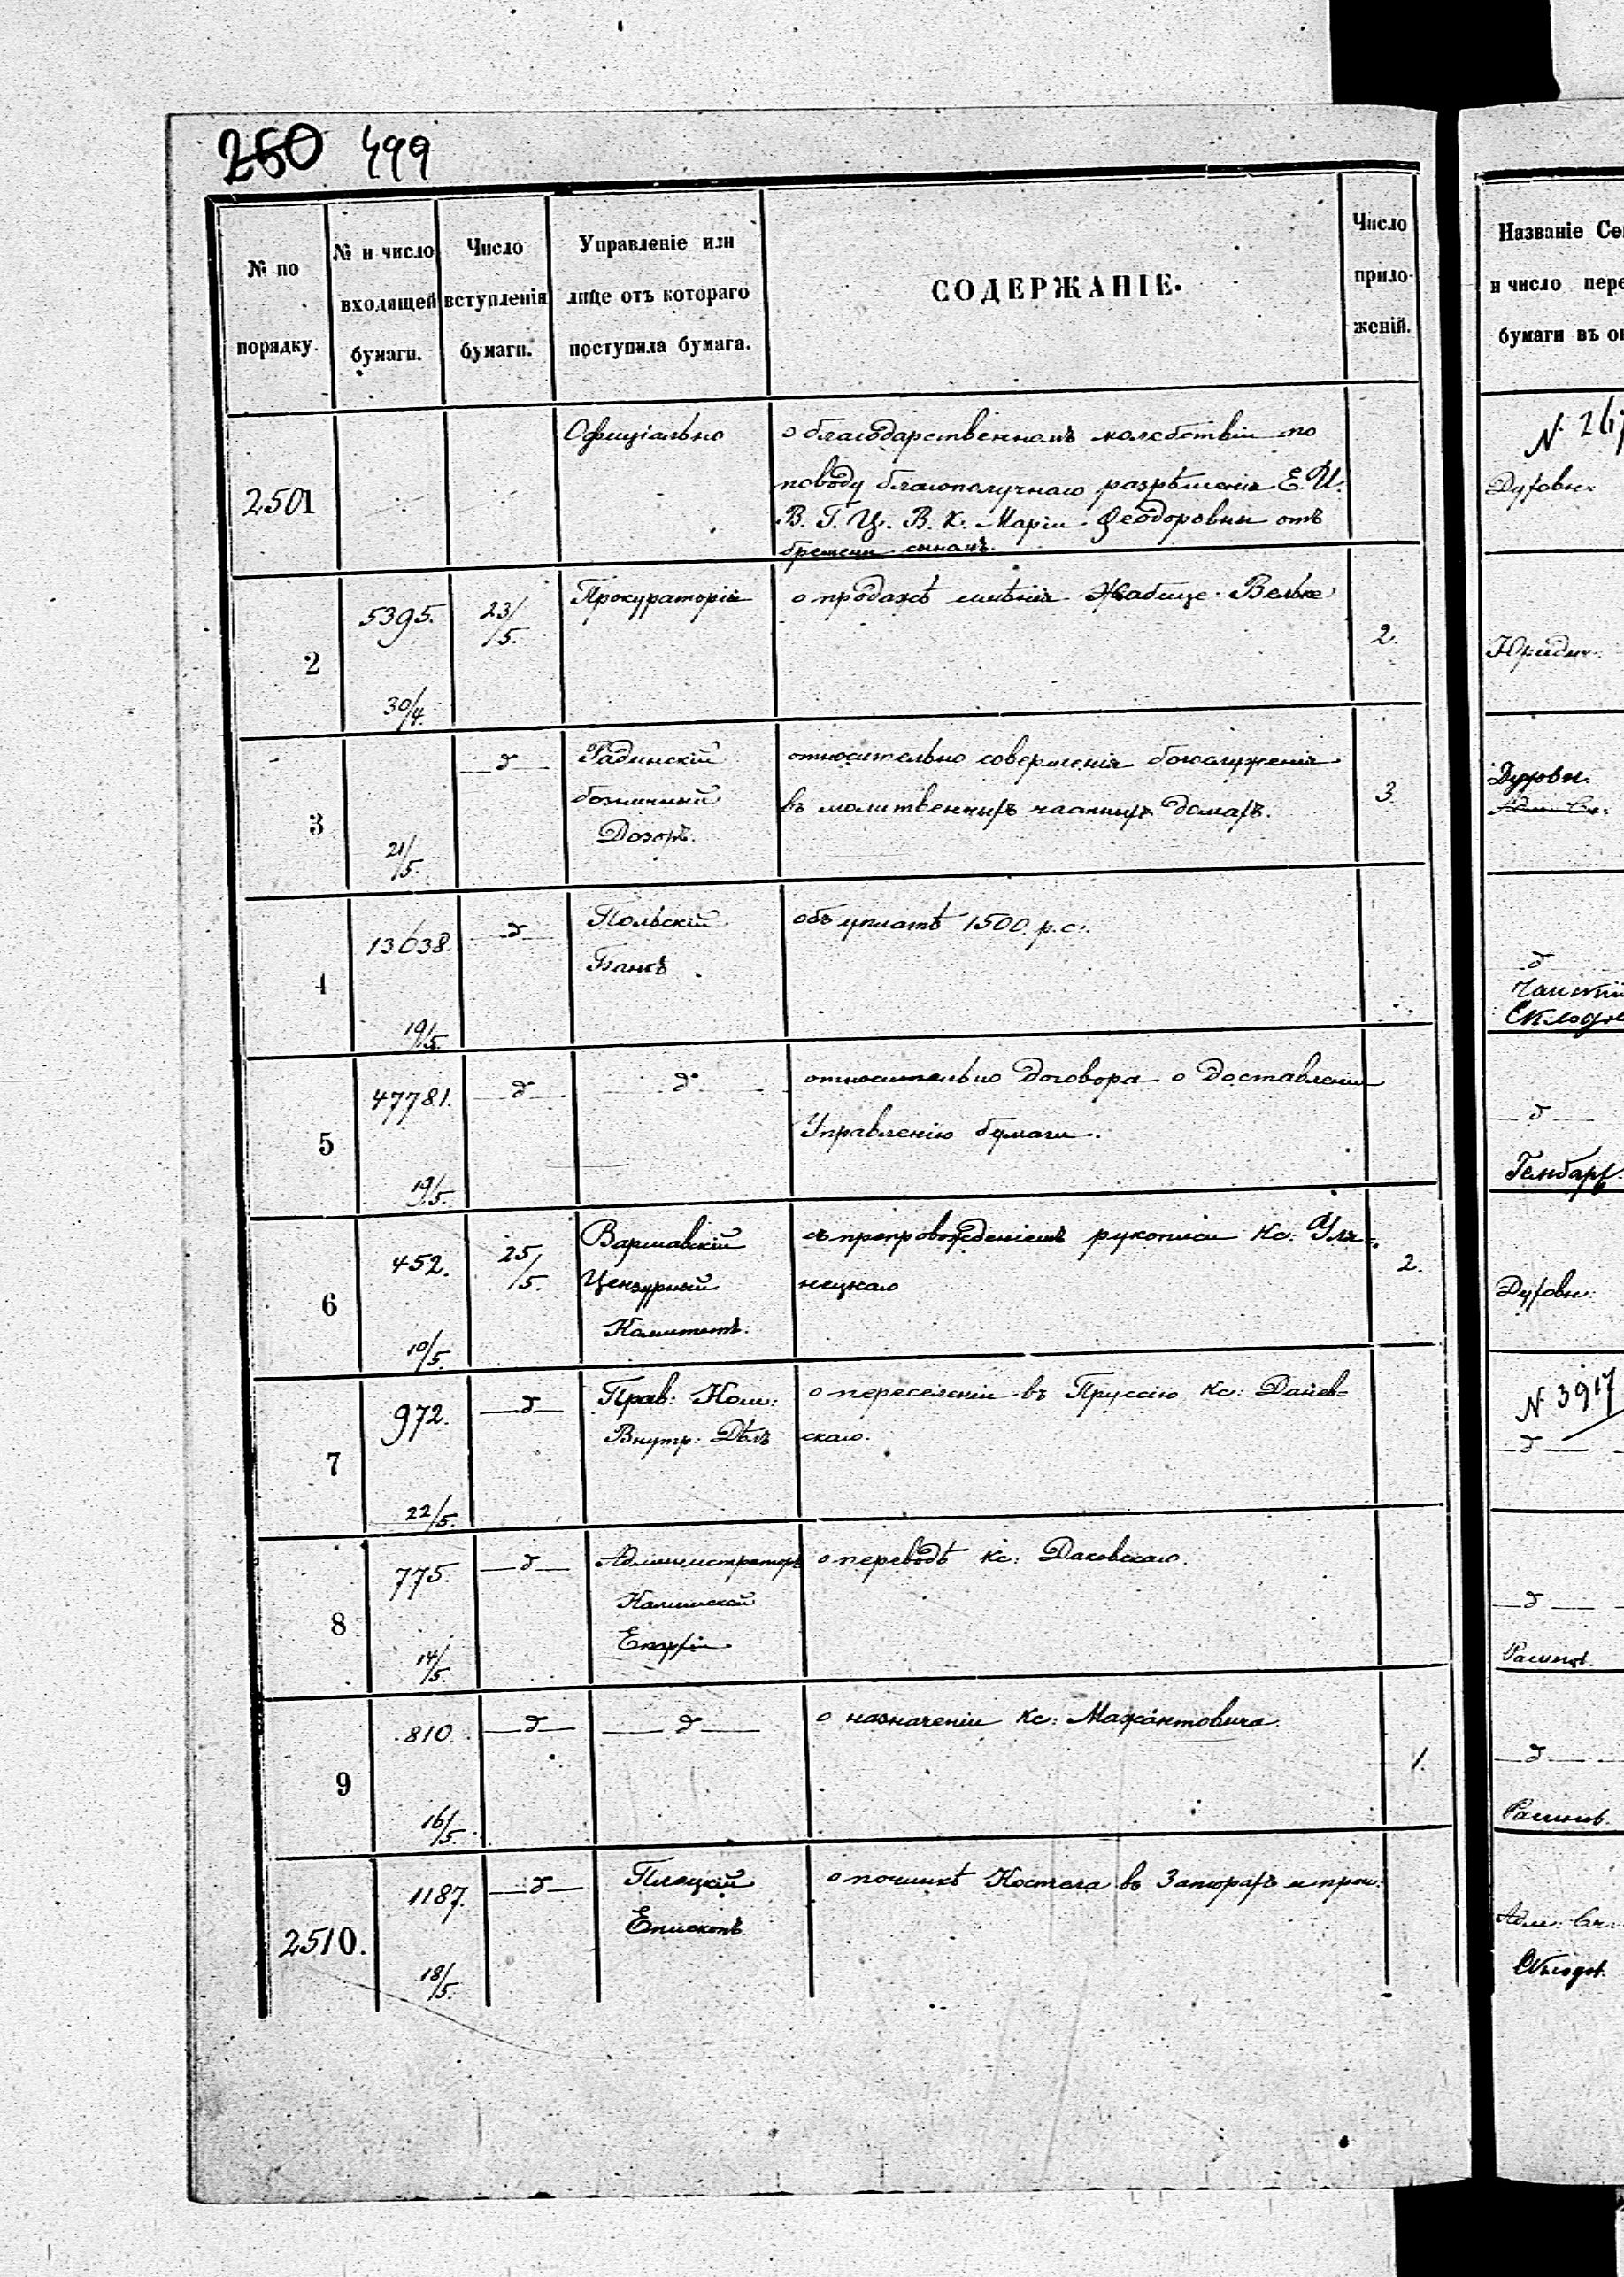 250 499
№ по порядку.
№ и число входящей бумаги.
Число вступленія бумаги.
Управленіе или лице отъ котораго поступила бумага.
СОДЕРЖАНІЕ.
Число прило-
женій.
Названіе Се
и число пере
бумаги въ о
2501
Офиціально
о благодарственномъ молебствіи по
поводу благополучнаго разрѣшенія Е. И.
В. Г. Ц. В. К. Маріи Феодоровны отъ
бремени сыномъ.
N. 26
Духовн.
2
5395.
30/4.
23/5.
Прокураторія
о продажѣ имѣнія Жабице Вельке
2.
Юридич.
3
21/5.
д
Радинскій
божничный
Дозоръ.
относительно совершенія богослуженія
въ молитвенныхъ частныхъ домахъ.
3
Духовн.
4
13638.
19/5.
д
Польскій
Банкъ
объ уплатѣ 1500. р. с.
д
Склодо
5
47781.
19/5.
д
д
относительно договора о доставленіи
Управленію бумаги.
д
Гембарх.
6
452.
10/5.
25/5.
Варшавскій
Цензурный
Комитетъ.
съ препровожденіемъ рукописи Кс: Уля=
нецкаго
2.
Духовн:
7
972.
22/5.
д
Прав: Ком:
Внутр: Дѣлъ
о переселеніи въ Пруссію Кс: Даіев=
скаго.
N 3917
д
8
775.
14/5.
д
Администраторъ
Калишской
Епархіи
о переводѣ Кс: Даковскаго.
д
9
810.
16/5.
д
д
о назначеніи Кс: Мажантовича.
1.
д
2510.
1187.
18/5.
д
Плоцкій
Епископъ
о починкѣ Костела въ Запюрахъ и проч.
Адм: Сл:
Склодов.